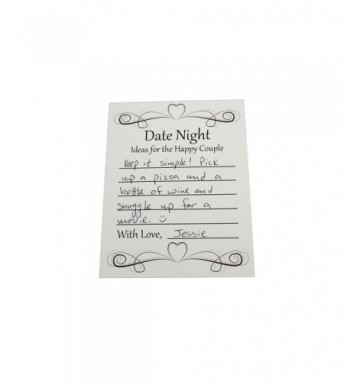 Date Night
Ideas for the Happy Couple
Keep it simple! Pick
up a pizza and a
bottle of wine and
snuggle up for a
movie. :)
With Love, Jessie